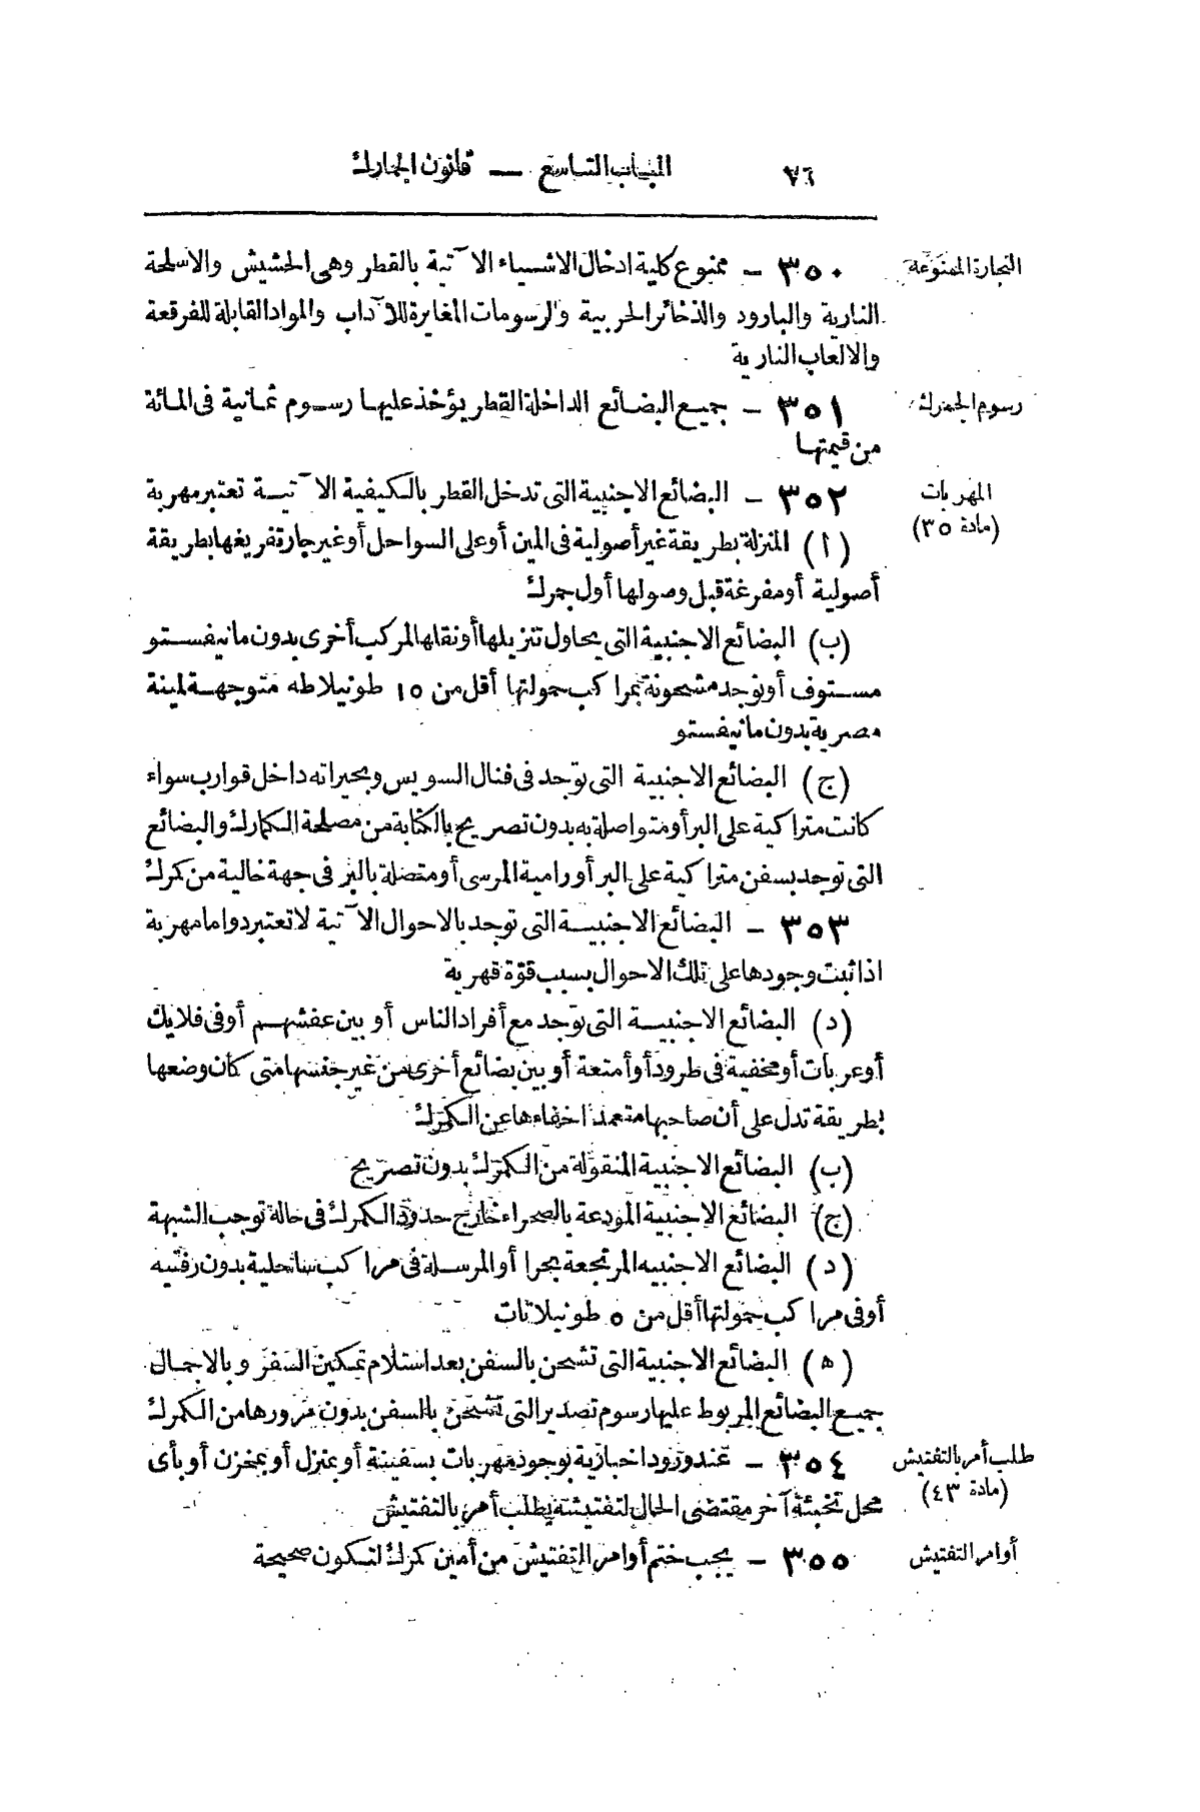 ٧٦ الباب التاسع — قانون الجمارك
التجارة الممنوعة
٣٥٠ – ممنوع كلية ادخال الاشياء الآتية بالقطر وهى الحشيش والاسلحة
النارية والبارود والذخائر الحربية والرسومات المغايرة للآداب والمواد القابلة للفرقعة
والالعاب النارية
رسوم الجمرك
٣٥١ – جميع البضائع الداخلة القطر يؤخذ عليها رسوم ثمانية فى المائة
من قيمتها
المهربات
(مادة ٣٥)
٣٥٢ – البضائع الاجنبية التى تدخل القطر بالكيفية الآتية تعتبر مهربة
(أ) المنزلة بطريقة غير أصولية فى المين أو على السواحل أو غير جار تفريغها بطريقة
أصولية أو مفرغة قبل وصولها أول جمرك
(ب) البضائع الاجنبية التى يحاول تنزيلها أو نقلها لمركب أخرى بدون مانيفستو
مستوف أو توجد مشحونة بمراكب حمولتها أقل من ١٥ طونيلاطه متوجهة لمينة
مصرية بدون مانيفستو
(ج) البضائع الاجنبية التى توجد فى قنال السويس وبحيراته داخل قوارب سواء
كانت متراكية على البر أو متواصلة به بدون تصريح بالكتابة من مصلحة الكمارك والبضائع
التى توجد بسفن متراكية على البر أو رامية المرسى أو متصلة بالبر فى جهة خالية من كمرك
٣٥٣ – البضائع الاجنبية التى توجد بالاحوال الآتية لا تعتبر دواما مهربة
اذا ثبت وجودها على تلك الاحوال بسبب قوّة قهرية
(د) البضائع الاجنبية التى توجد مع أفراد الناس أو بين عفشهم أو فى فلايك
أو عربات أو مخفية فى طرود أو أمتعة أو بين بضائع أخرى من غير جنسها متى كان وضعها
بطريقة تدل على أن صاحبها متعمد اخفاءها عن الكمرك
(ب) البضائع الاجنبية المنقولة من الكمرك بدون تصريح
(ج) البضائع الاجنبية المودعة بالصحراء خارج حدود الكمرك فى حالة توجب الشبهة
(د) البضائع الاجنبيه المرتجعة بحرا أو المرسلة فى مراكب ساحلية بدون رفتيه
أو فى مراكب حمولتها أقل من ٥ طونيلاتات
(ه) البضائع الاجنبية التى تشحن بالسفن بعد استلام تمكين السفر وبالاجمال
جميع البضائع المربوط عليها رسوم تصدير التى تشحن بالسفن بدون مرورها من الكمرك
طلب أمر بالتفتيش
(مادة ٤٣)
٣٥٤ – عند ورود اخبارية بوجود مهربات بسفينة أو بمنزل أو بمخزن أو بأى
محل تخبئة آخر مقتضى الحال لتفتيشه يطلب أمر بالتفتيش
أوامر التفتيش
٣٥٥ – يجب ختم أوامر التفتيش من أمين كمرك لتكون صحيحة